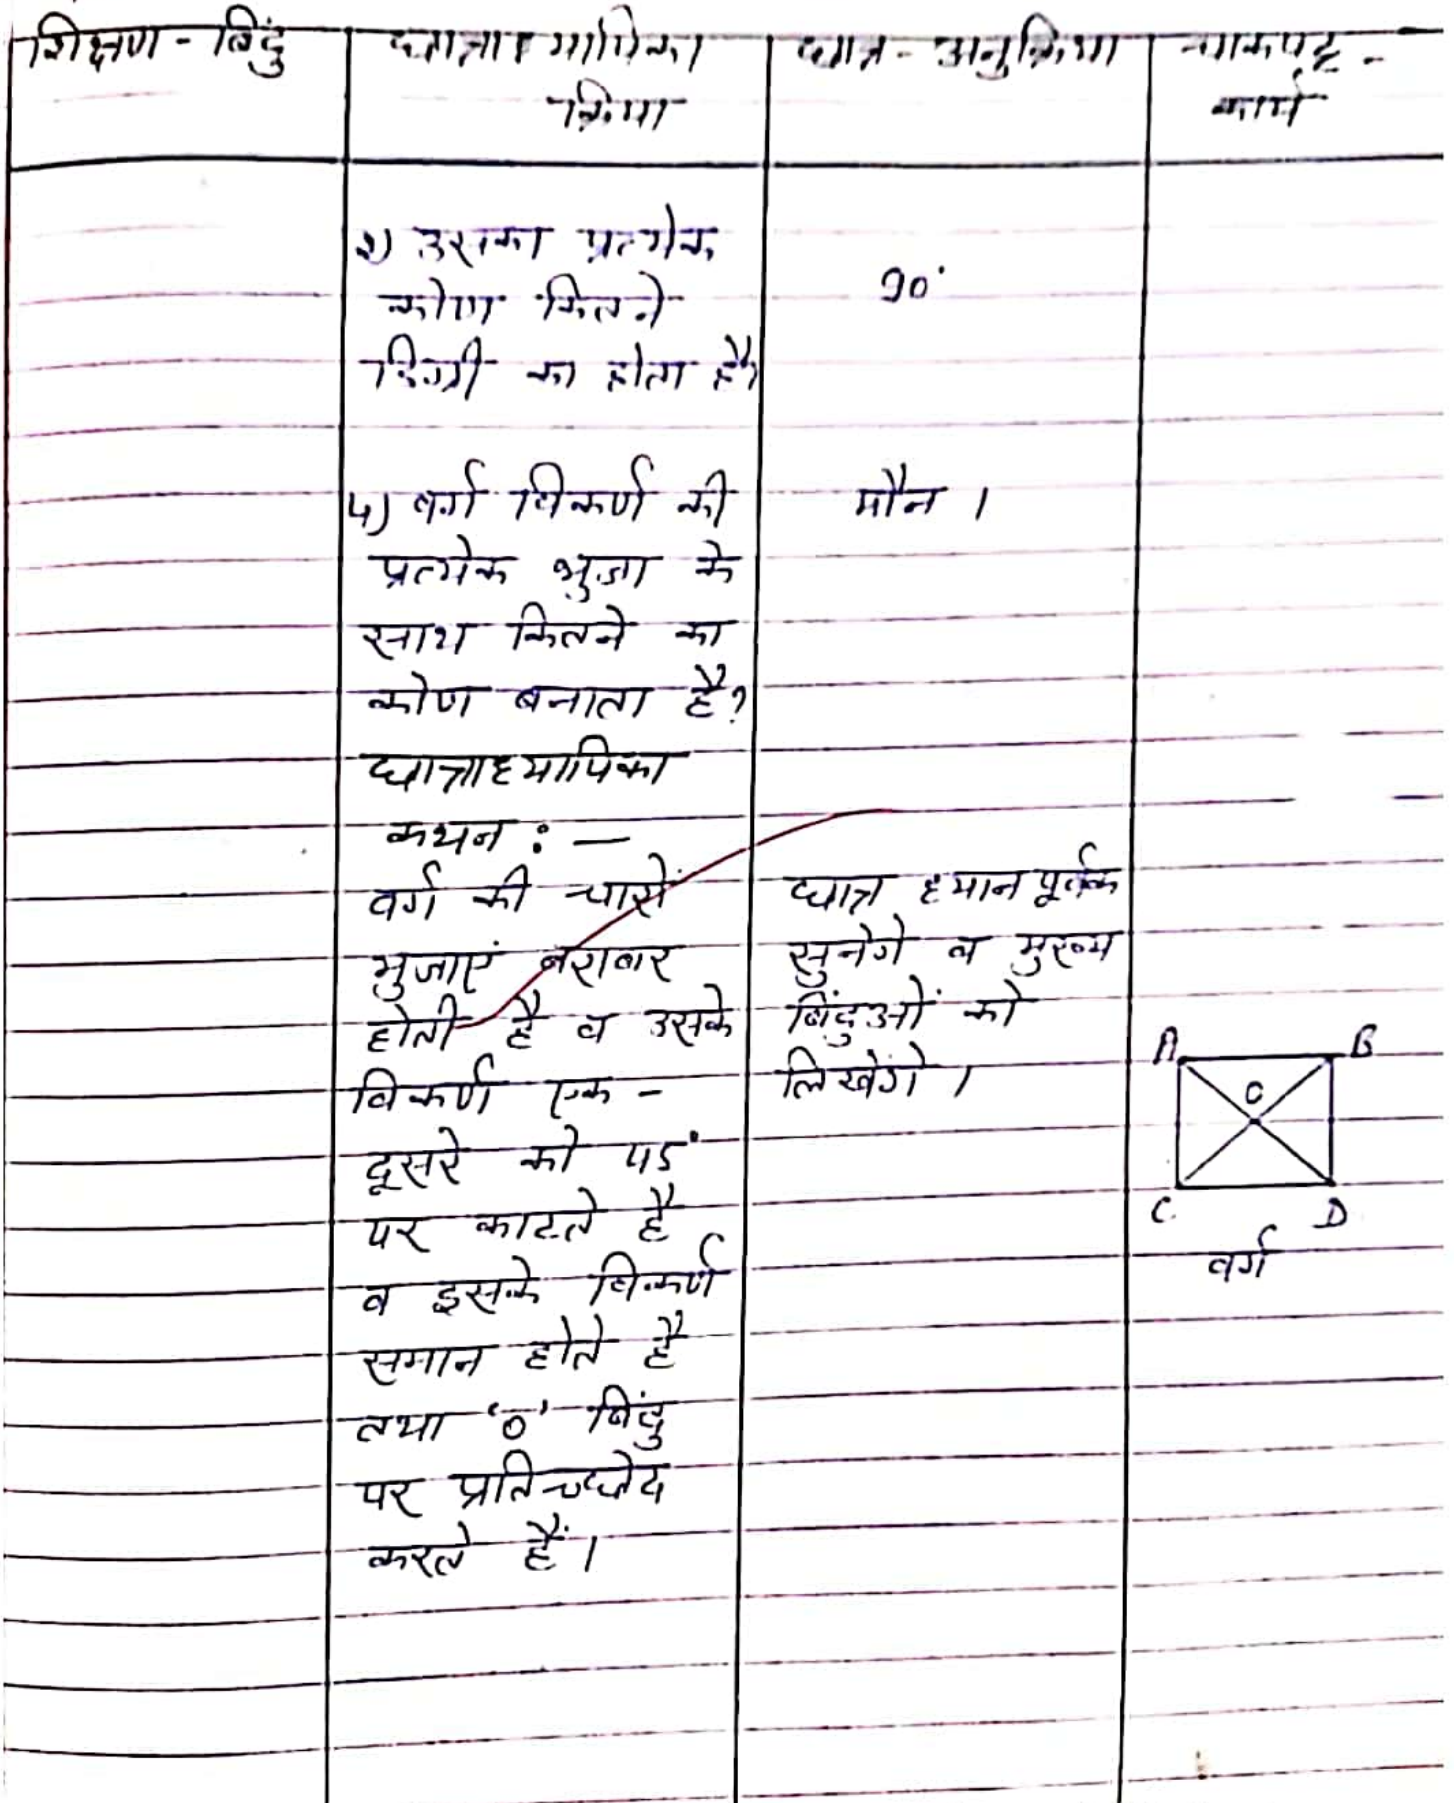 शिक्षण - बिंदु
छात्राध्यापिका
क्रिया
छात्र - अनुक्रिया
चाकपट्ट -
कार्य
उसका प्रत्येक
कोण कितने
डिग्री का होता है?
90°
वर्ग विकर्ण की
प्रत्येक भुजा के
साथ कितने का
कोण बनाता है?
मौन ।
छात्राध्यापिका
कथन : —
वर्ग की चारों
भुजाएं बराबर
होती है व उसके
विकर्ण एक -
दूसरे को
पर काटते है
व इसके विकर्ण
समान होते है
तथा 'O' बिंदु
पर प्रतिच्छेद
करते हैं ।
छात्र ध्यान पूर्वक
सुनेगे व मुख्य
बिंदुओं को
लिखेंगे ।
A B
O
C. D
वर्ग